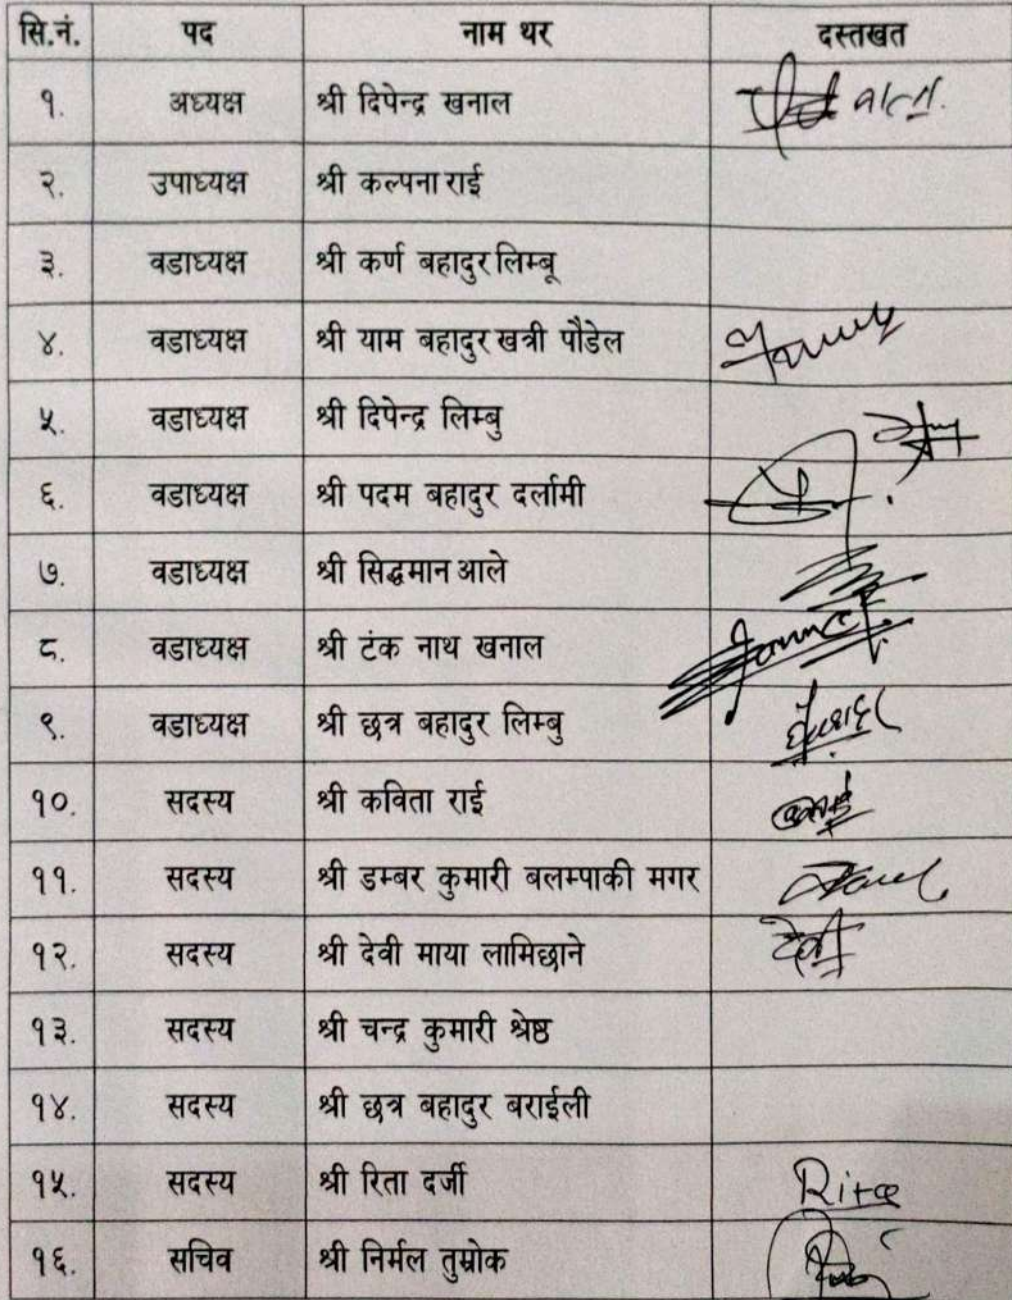 सि.नं. पद नाम थर दस्तखत
१. अध्यक्ष श्री दिपेन्द्र खनाल
२. उपाध्यक्ष श्री कल्पना राई
३. वडाध्यक्ष श्री कर्ण बहादुर लिम्बू
४. वडाध्यक्ष श्री याम बहादुर खत्री पौडेल
५. वडाध्यक्ष श्री दिपेन्द्र लिम्बु
६. वडाध्यक्ष श्री पदम बहादुर दर्लामी
७. वडाध्यक्ष श्री सिद्धमान आले
८. वडाध्यक्ष श्री टंक नाथ खनाल
९. वडाध्यक्ष श्री छत्र बहादुर लिम्बु
१०. सदस्य श्री कविता राई
११. सदस्य श्री डम्बर कुमारी बलम्पाकी मगर
१२. सदस्य श्री देवी माया लामिछाने देवी
१३. सदस्य श्री चन्द्र कुमारी श्रेष्ठ
१४. सदस्य श्री छत्र बहादुर बराईली
१५. सदस्य श्री रिता दर्जी Rita
१६. सचिव श्री निर्मल तुम्रोक